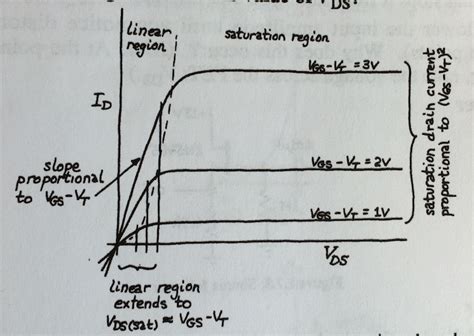 VDS.
linear
region
saturation region
ID
VGS-VT = 3V
slope
proportional
to VGS-VT
VGS-VT = 2V
VGS-VT = 1V
saturation drain current
proportional to (VGS-VT)2
VDS
linear region
extends to
VDS(sat) ≈ VGS-VT